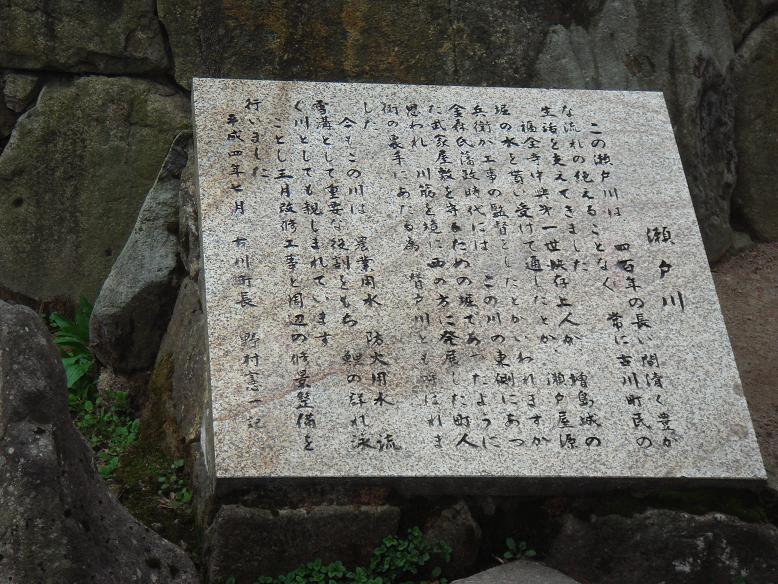 瀬戸川
この瀬戸川は 四百年の長い間清く豊か
な流れの絶えることなく 常に古川町民の
生活を支えてきました
福全寺中興第一世快存上人が 増島城の
堀の水を貰い受けて通したとか 瀬戸屋源
兵衛が工事の監督としたとかいわれますが
金森氏藩政時代には この川の東側にあっ
た武家屋敷を守るための堀であったように
思われ 川筋を境に西の方に発展した町人
街の裏手にあたる為 背戸川とも呼ばれま
した
今もこの川は 農業用水 防火用水 流
雪溝として重要な役割をもち 鯉の群れ泳
ぐ川としても親しまれています
ことし三月改修工事と周辺の修景整備を
行いました
平成四年七月 古川町長 野村喜一記